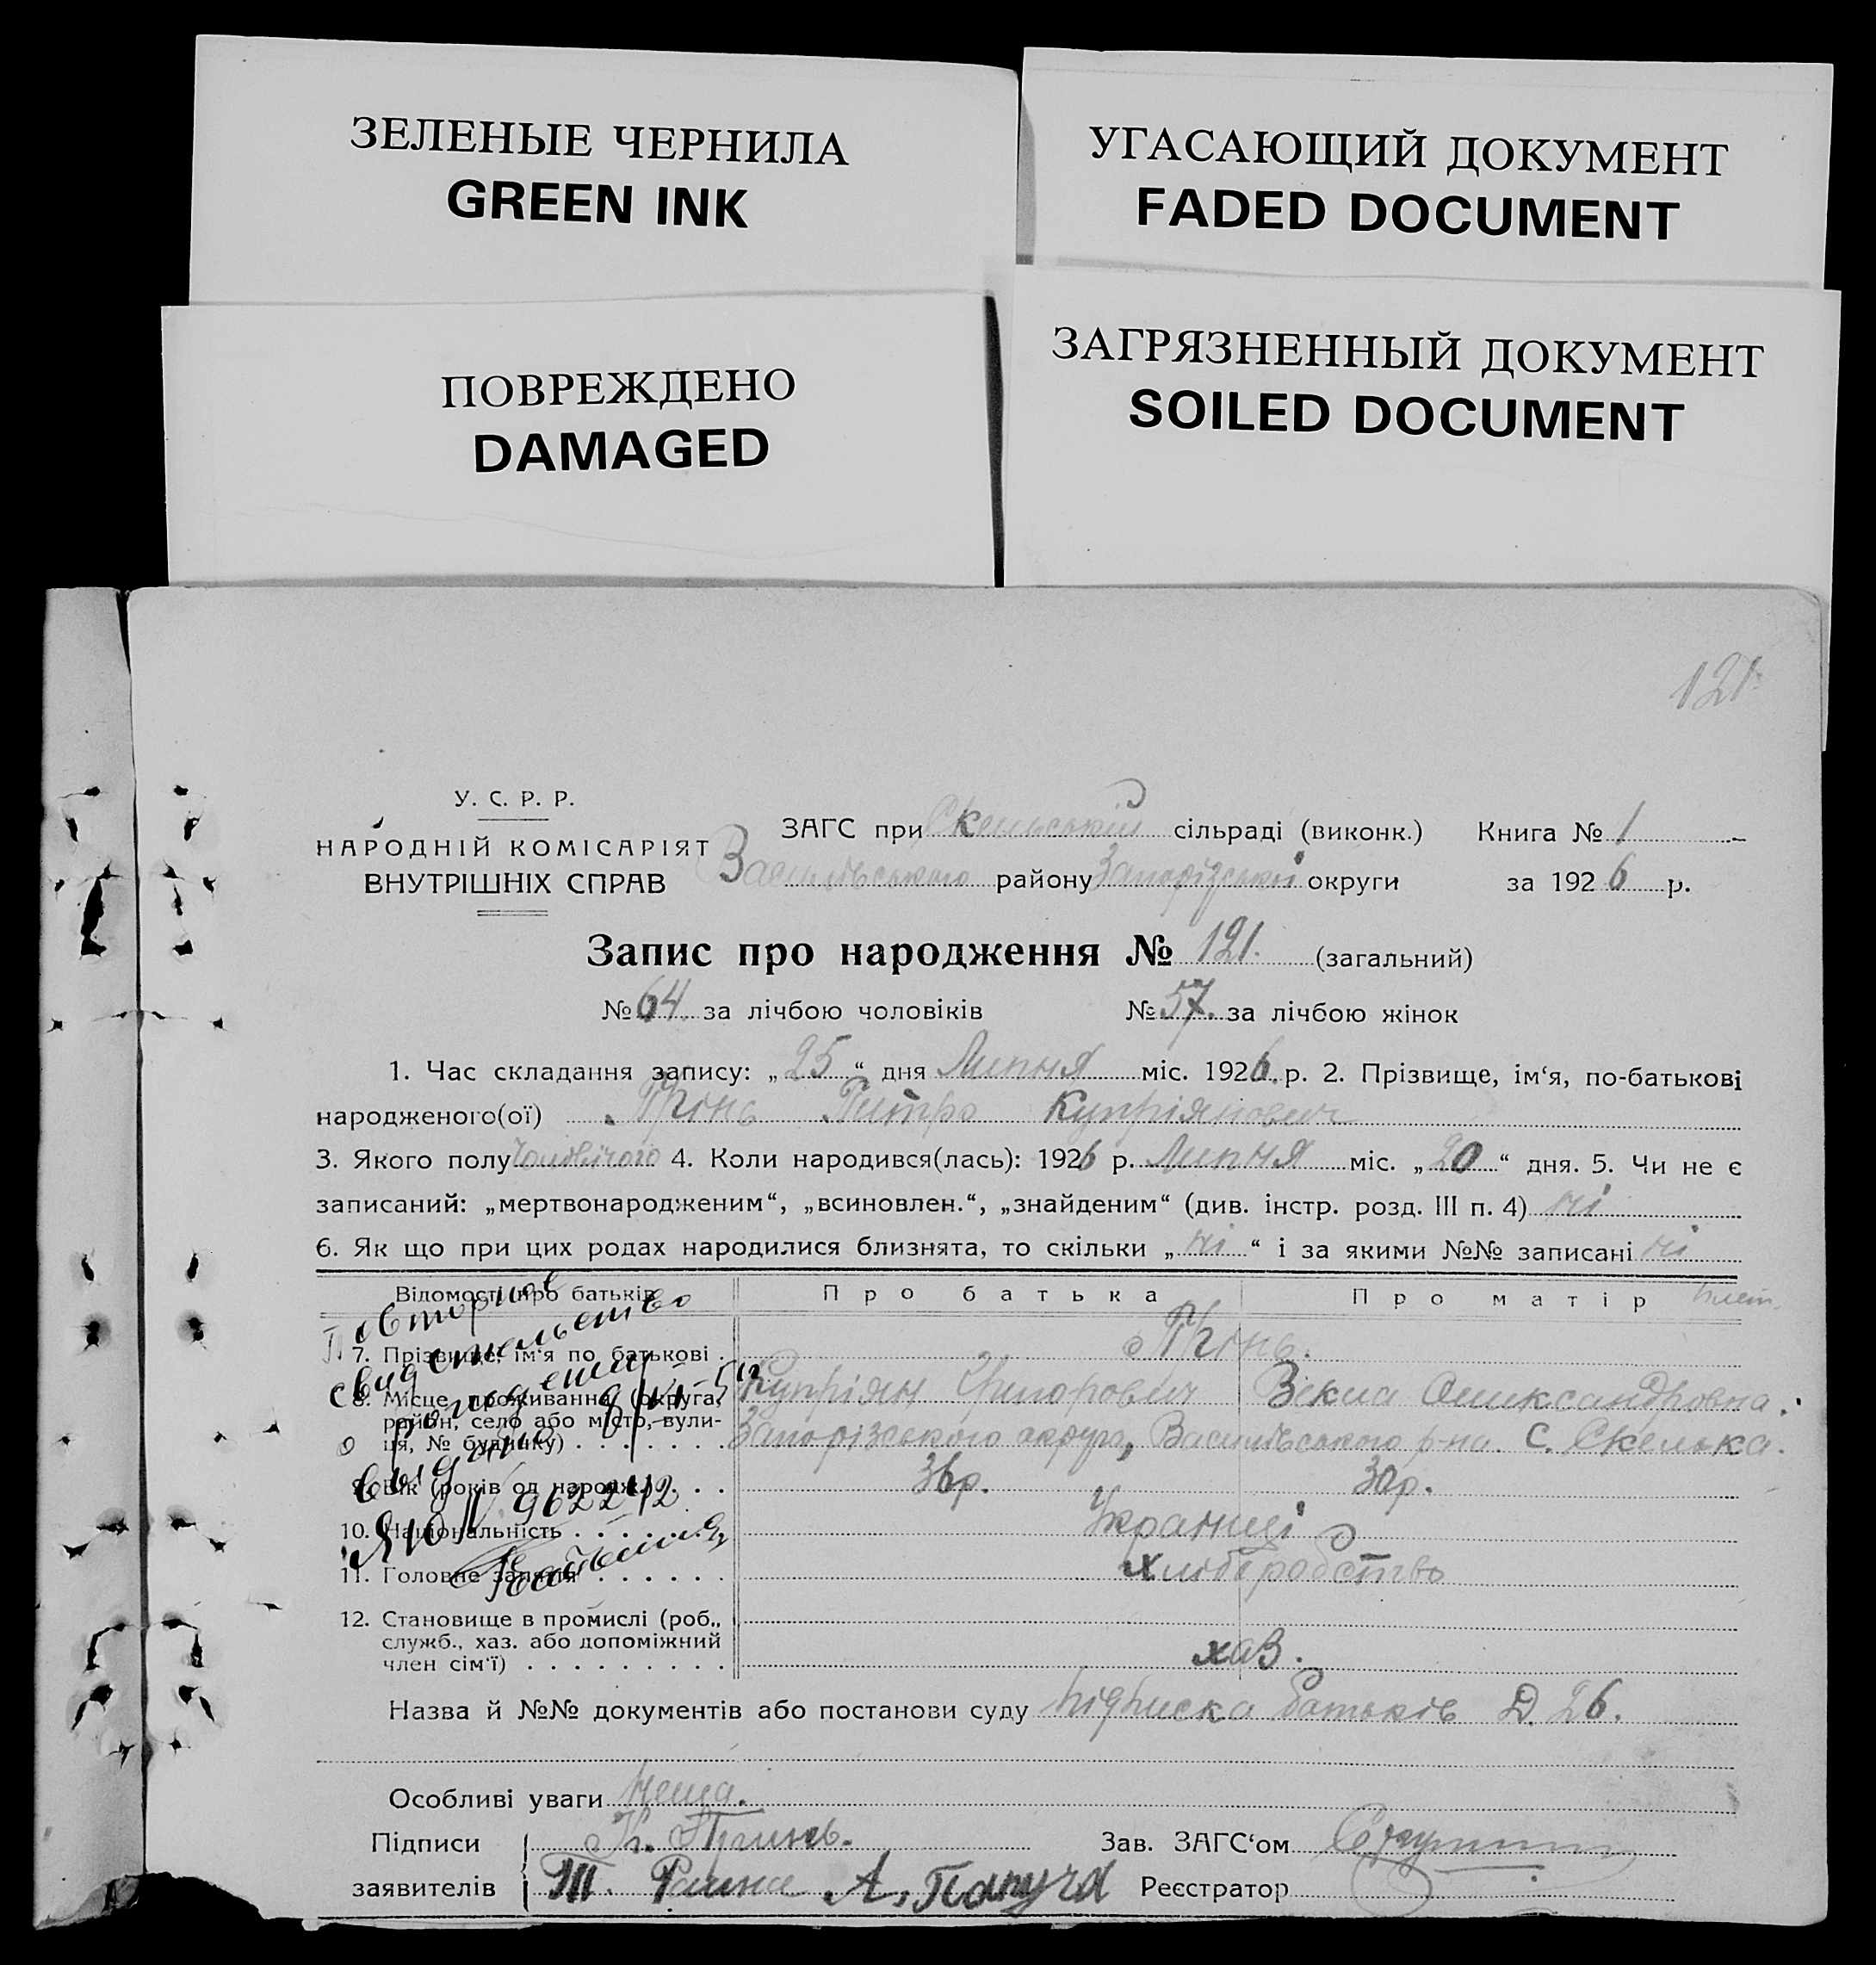 ЗЕЛЕНЫЕ ЧЕРНИЛА
GREEN INK
УГАСАЮЩИЙ ДОКУМЕНТ
FADED DOCUMENT
ПОВРЕЖДЕНО
DAMAGED
ЗАГРЯЗНЕННЫЙ ДОКУМЕНТ
SOILED DOCUMENT
121
У. С. Р. Р.
НАРОДНІЙ КОМІСАРІЯТ
ВНУТРІШНІХ СПРАВ
ЗАГС при Скельській сільраді (виконк.) Книга № 1
Василівського району Запорізської округи за 1926 р.
Запис про народження № 121. (загальний)
№ 64 за лічбою чоловіків № 57. за лічбою жінок
1. Час складання запису: „25“ дня Липня міс. 1926. р. 2. Прізвище, ім‘я, по-батькові
народженого(ої) Петро Купріянович
3. Якого полу чоловічого 4. Коли народився(лась): 1926 р. Липня міс. „20“ дня. 5. Чи не є
записаний: „мертвонародженим“, „всиновлен.“, „знайденим“ (див. інстр. розд. III п. 4) ні
6. Як що при цих родах народилися близнята, то скільки „ні“ і за якими №№ записані ні
Відомості про батьків Про батька Про матір
7. Прізвище, ім‘я по батькові
Купріян Григорович Векла Олександровна.
8. Місце проживання (округа, район, село або місто, вулиця, № будинку) Запорізського округа, Василівського р-на. С. Скелька.
9. Вік (років од народж.) 36р. 30р.
10. Національність Украинці
11. Головне заняття хліборобство
12. Становище в промислі (роб., служб., хаз. або допоміжний член сім‘ї) хаз.
повторное
свидетельство
о рождении
выдано
ЯЮ № 962242
Назва й №№ документів або постанови суду підписка батьків Д. 26.
Особливі уваги нема.
Підписи К. Зав. ЗАГС‘ом
заявителів А. Папуча Реєстратор